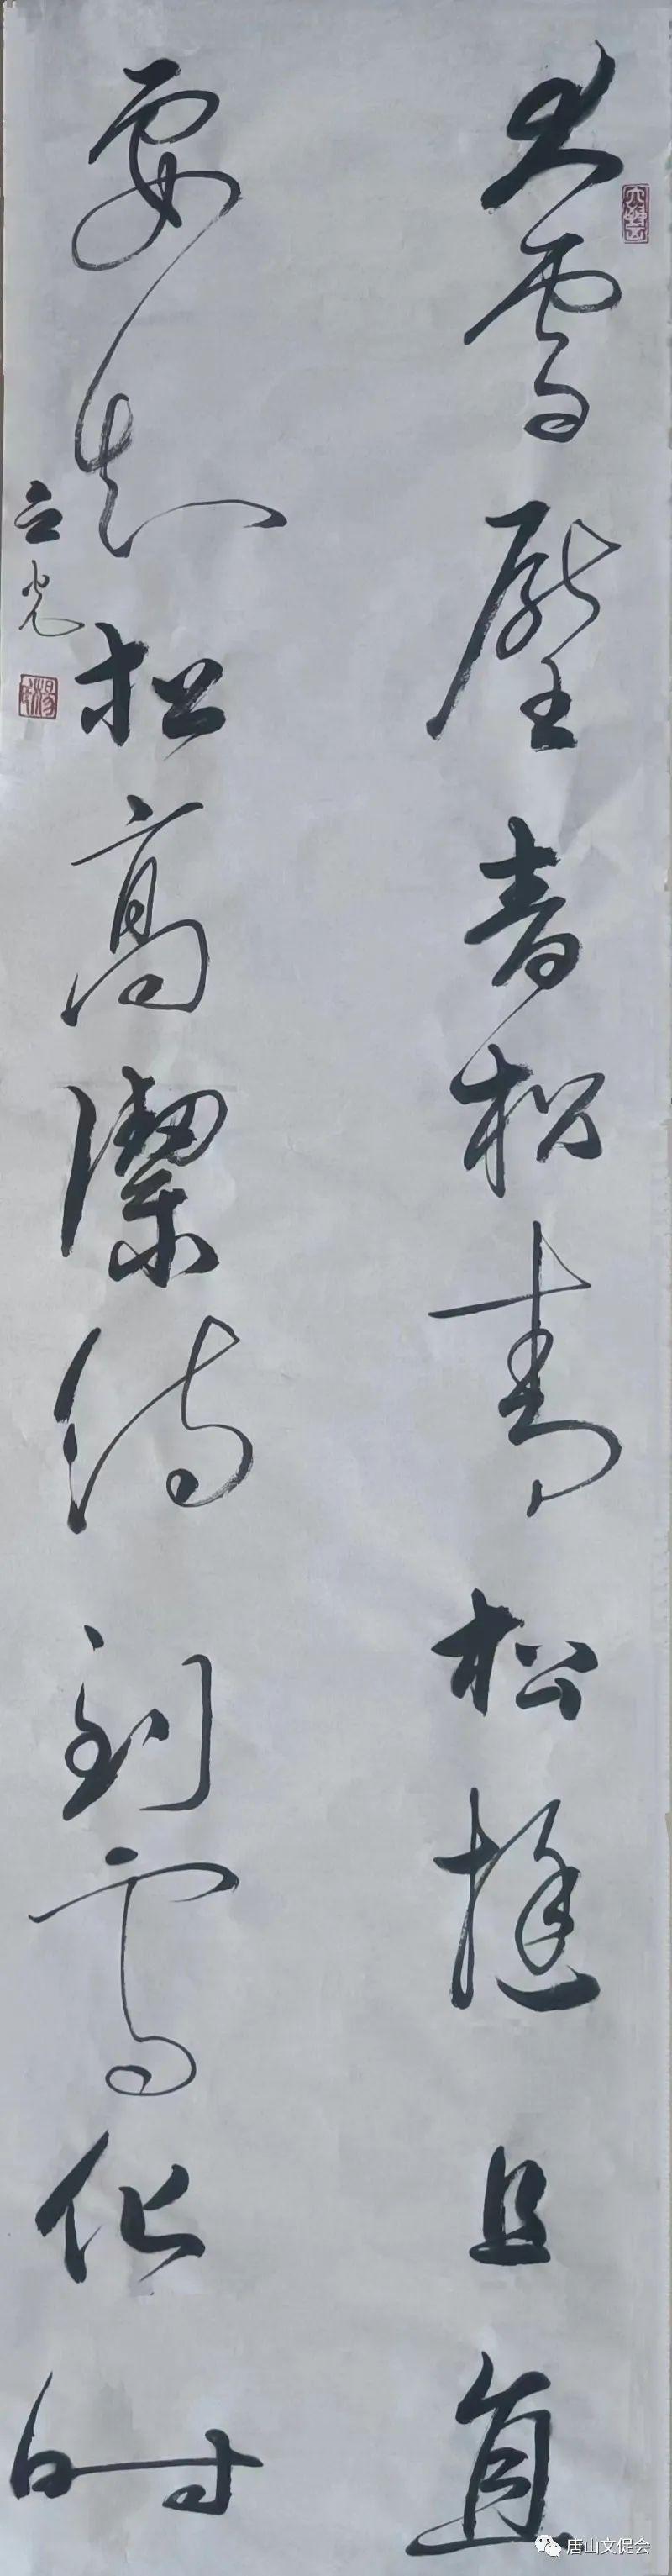 大雪壓青松青松挺且直
要知松高潔待到雪化時
立光
唐山文促会